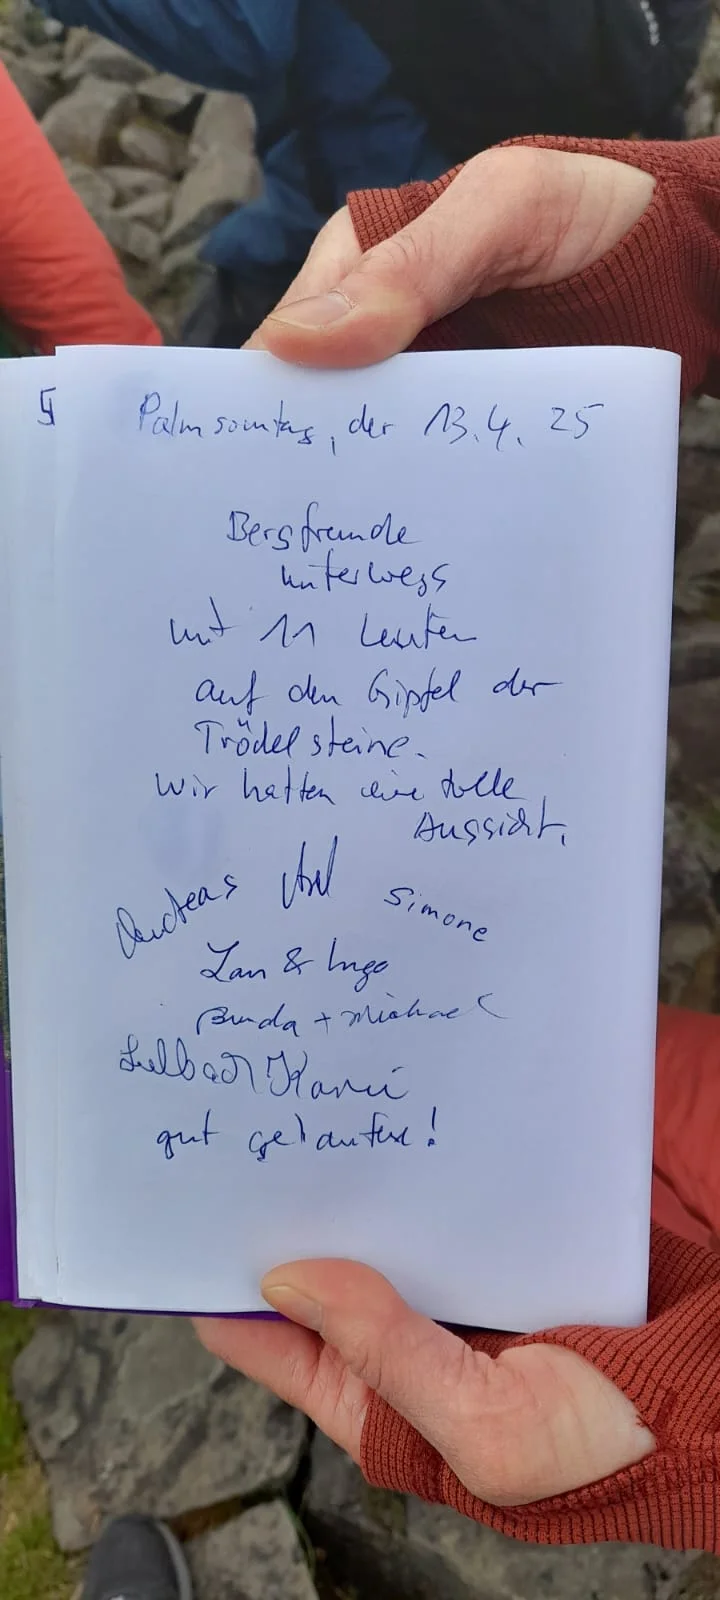 Palmsonntag, der 13.4.25
Bergfreunde
unterwegs
mit 11 Leuten
auf den Gipfel der
Trödelsteine.
Wir hatten eine tolle
Aussicht.
Andreas Axel Simone
Jan & Ingo
+ Michael
gut gelaufen!